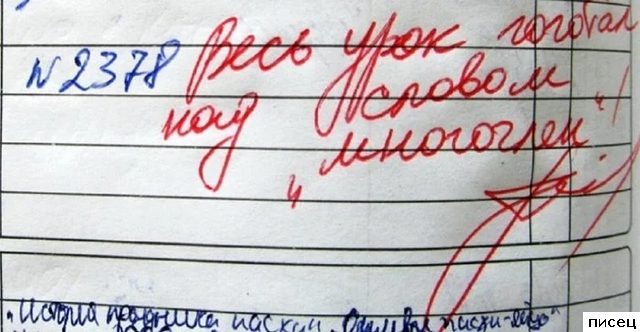 №2378 Весь урок гоготал
над словом
„многочлен"!
„История праздника пасхи.
писец